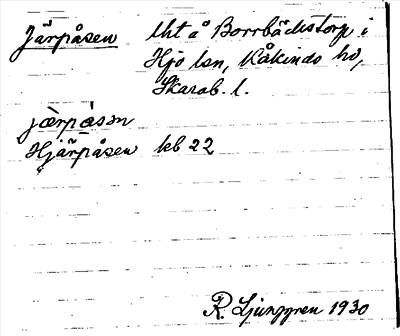 Järpåsen lht å Borrbäckstorp i
Hjo lsn, Kåkinds hd,
Skarab. l.
jærpåsən
Hjärpåsen kb 22
R. Ljunggren 1930